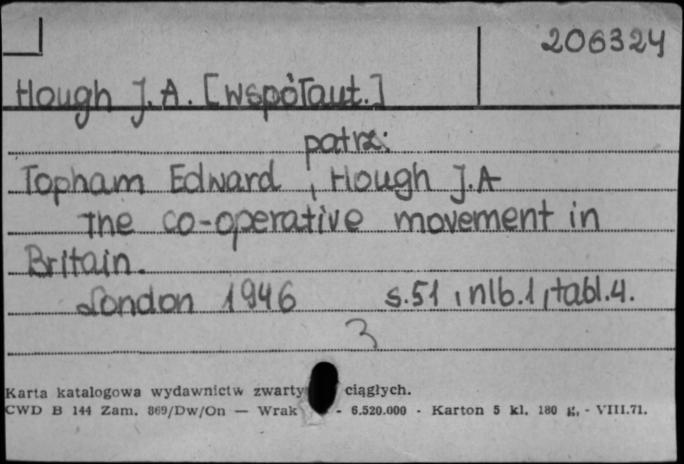 206324
Hough J.A. [współaut.]
patrz:
Topham Edward, Hough J.A
The co-operative movement in
Britain.
London 1946 s.51, nlb.1, tabl.4.
3
Karta katalogowa wydawnictw zwarty ciągłych.
CWD B 144 Zam. 869/Dw/On — Wrak - 6.520.000 - Karton 5 kl. 180 g, - VIII.71.